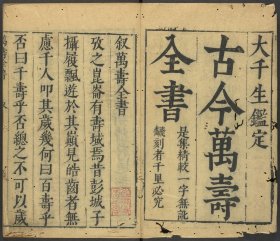 大千生鑑定
古今萬壽
全書
是集精較一字無訛
翻刻者千里必究
叙萬壽全書
攷之崑崙有壽域焉昔彭城子
攝履飄遊於其巔見皓齒者無
慮千人叩其歲幾何曰百壽乎
否曰千壽乎否總之不可以歲